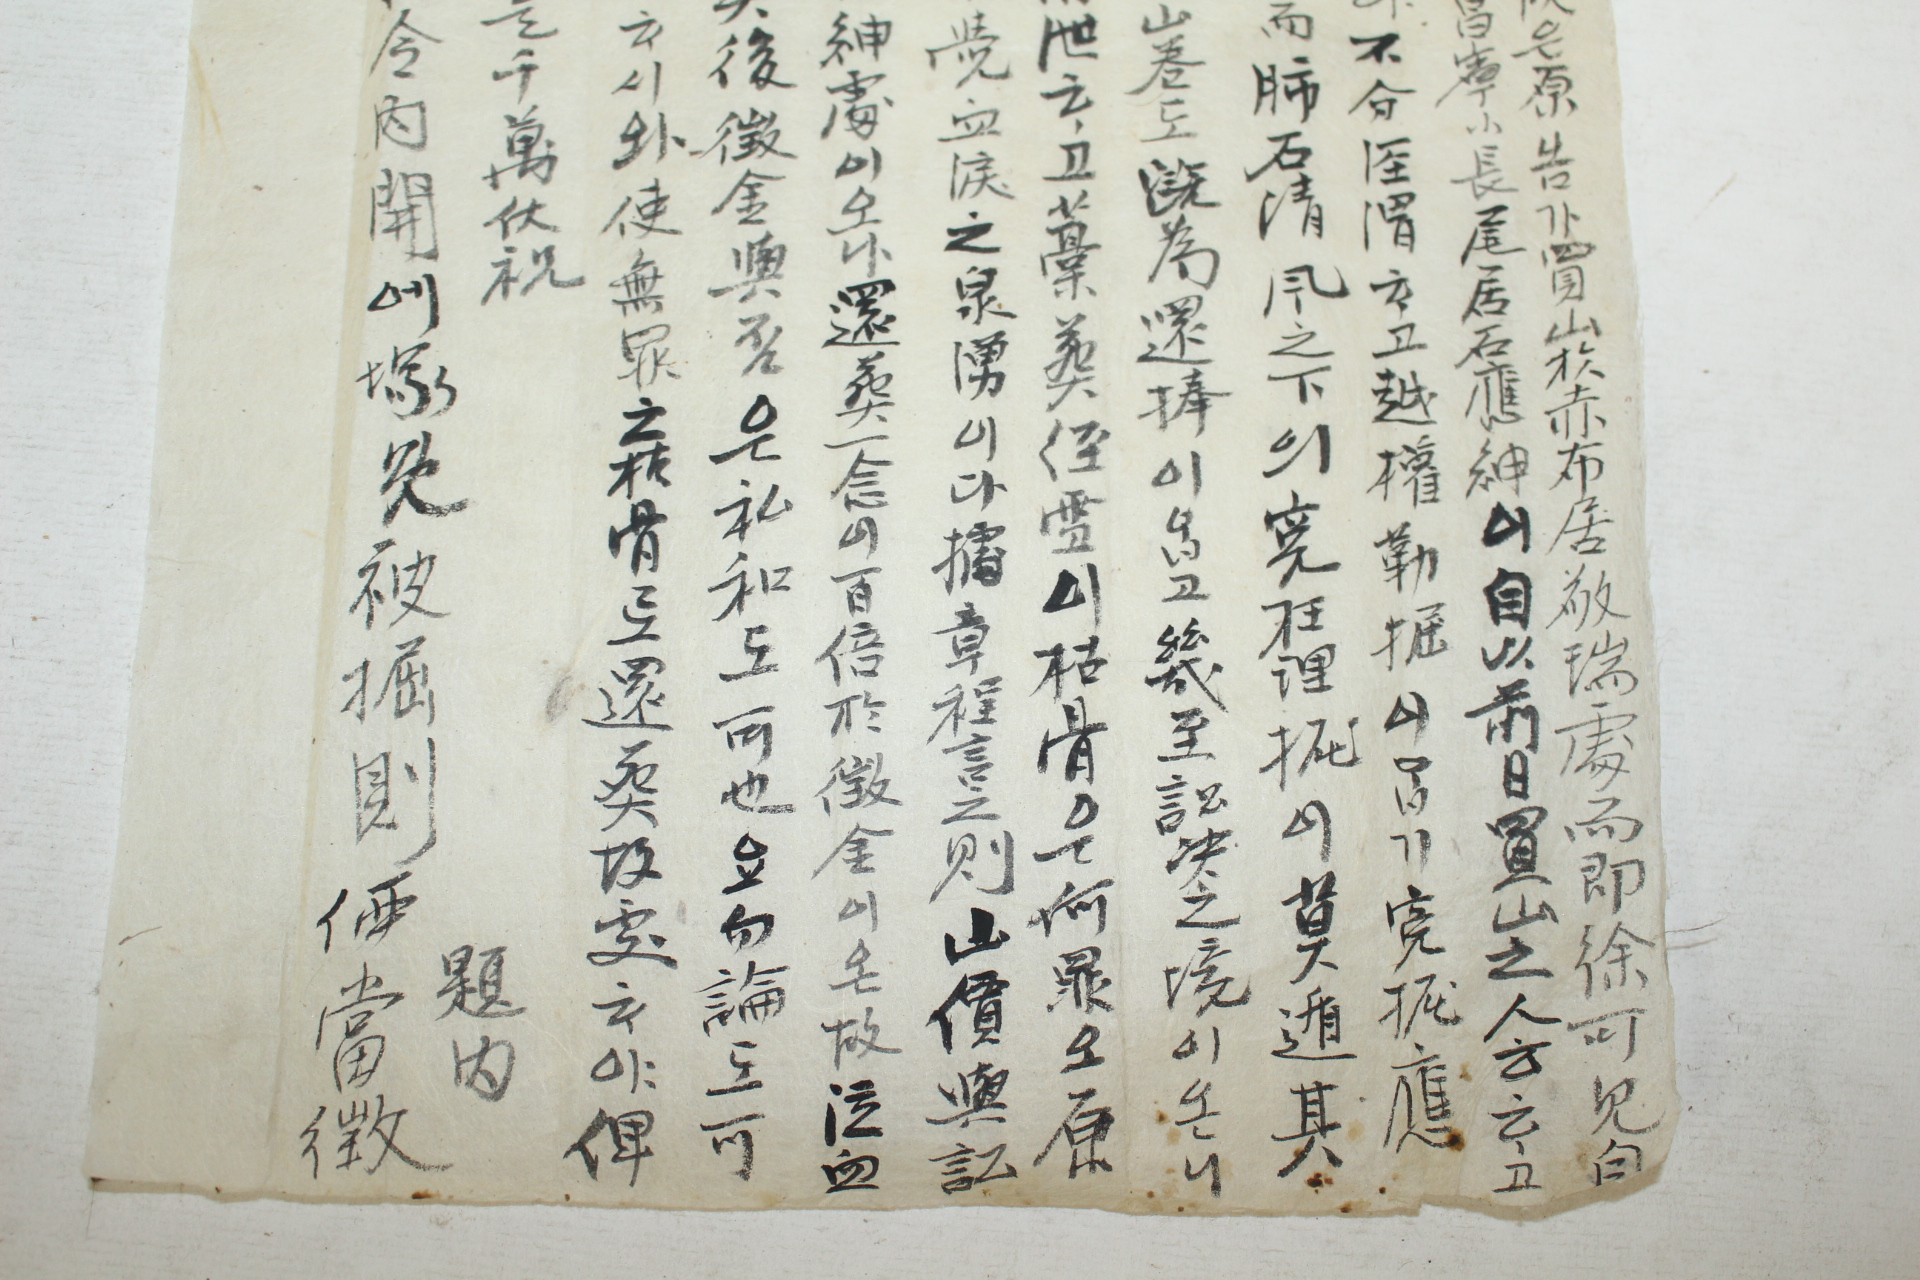 은原告가買山於赤布居敬瑞處而即徐可見白
昌寧小長尾居石應紳이自以前日買山之人方云고
不分涇渭云고越權勒掘이삽기寃掘應
而肺石淸風之下의寃枉理掘이莫遁其
山卷도濺為還捧이옵고幾至訟決之境이온니
泄云고藁葬侄雪이枯骨은何罪오原
覺血淚之泉湧이다據章程言之則山價與訟
紳處이오나還葬一念이百倍於徵金이온故泣血
後徵金與否은私和도可也요勿論도可
云시와使無罪之枯骨도還葬故處云야俾
千萬伏祝
題內
令內開에塚旣被掘則価當徵